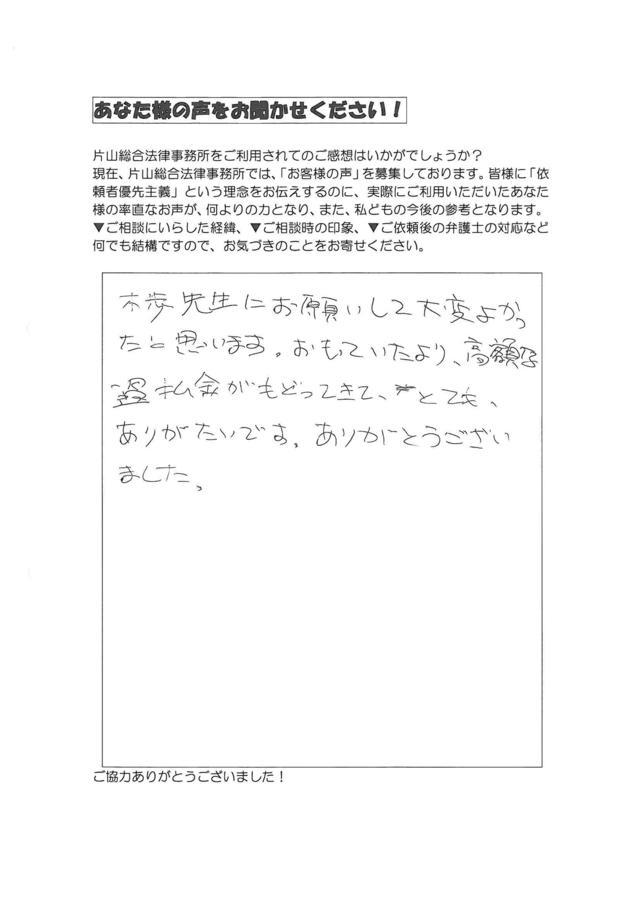 あなた様の声をお聞かせください!
片山総合法律事務所をご利用されてのご感想はいかがでしょうか?
現在、片山総合法律事務所では、「お客様の声」を募集しております。皆様に「依
頼者優先主義」という理念をお伝えするのに、実際にご利用いただいたあなた
様の率直なお声が、何よりの力となり、また、私どもの今後の参考となります。
▼ご相談にいらした経緯、▼ご相談時の印象、▼ご依頼後の弁護士の対応など
何でも結構ですので、お気づきのことをお寄せください。
先生にお願いして大変よかっ
たと思います。おもていたより、高額な
払金がもどってきて、とても、
ありがたいです。ありがとうござい
ました。
ご協力ありがとうございました!